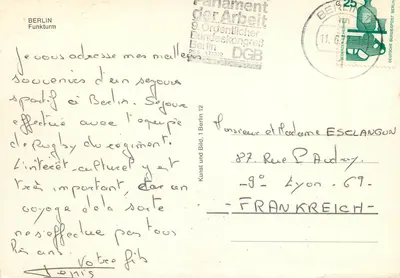 BERLIN
Funkturm
Parlament
der Arbeit
9. Ordentlicher
Bundeskongreß
Berlin
DGB
BERLIN
11.6.72-1
25
DEUTSCHE BUNDESPOST BERLIN
Je vous adresse mes meilleurs
souvenirs d'un séjour
sportif à Berlin. Séjour
effectué avec l'équipe
de Rugby du régiment.
L'intérêt culturel y est
très important, car un
voyage de la sorte
ne s'effectue pas tous
les ans.
Votre fils
Denis
Kunst und Bild, 1 Berlin 12
Monsieur et Madame ESCLANGON
87. Rue P. Audry.
9° Lyon. 69.
- FRANKREICH -